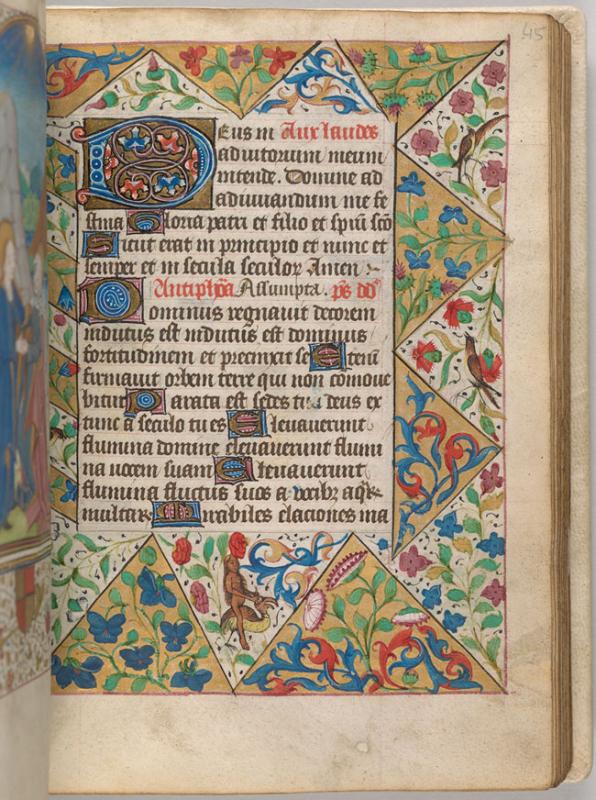 45
Deus in Aux laudes
adiutorium meum
intende. Domine ad
adiuuandum me fe
stina Gloria patri et filio et spiũ scõ
Sicut erat in principio et nunc et
semper et in secula seculor Amen
Antiphõa Assumpta. p̃s dd̃
Dominus regnauit decorem
indutus est indutus est dominus
fortitudinem et precinxit se Etenĩ
firmauit orbem terre qui non comoue
bitur Parata est sedes tua deus ex
tunc a seculo tu es Eleuauerunt
flumina domine eleuauerunt flumi
na uocem suam Eleuauerunt
flumina fluctus suos a uocibz aqr
multar Mirabiles elaciones ma